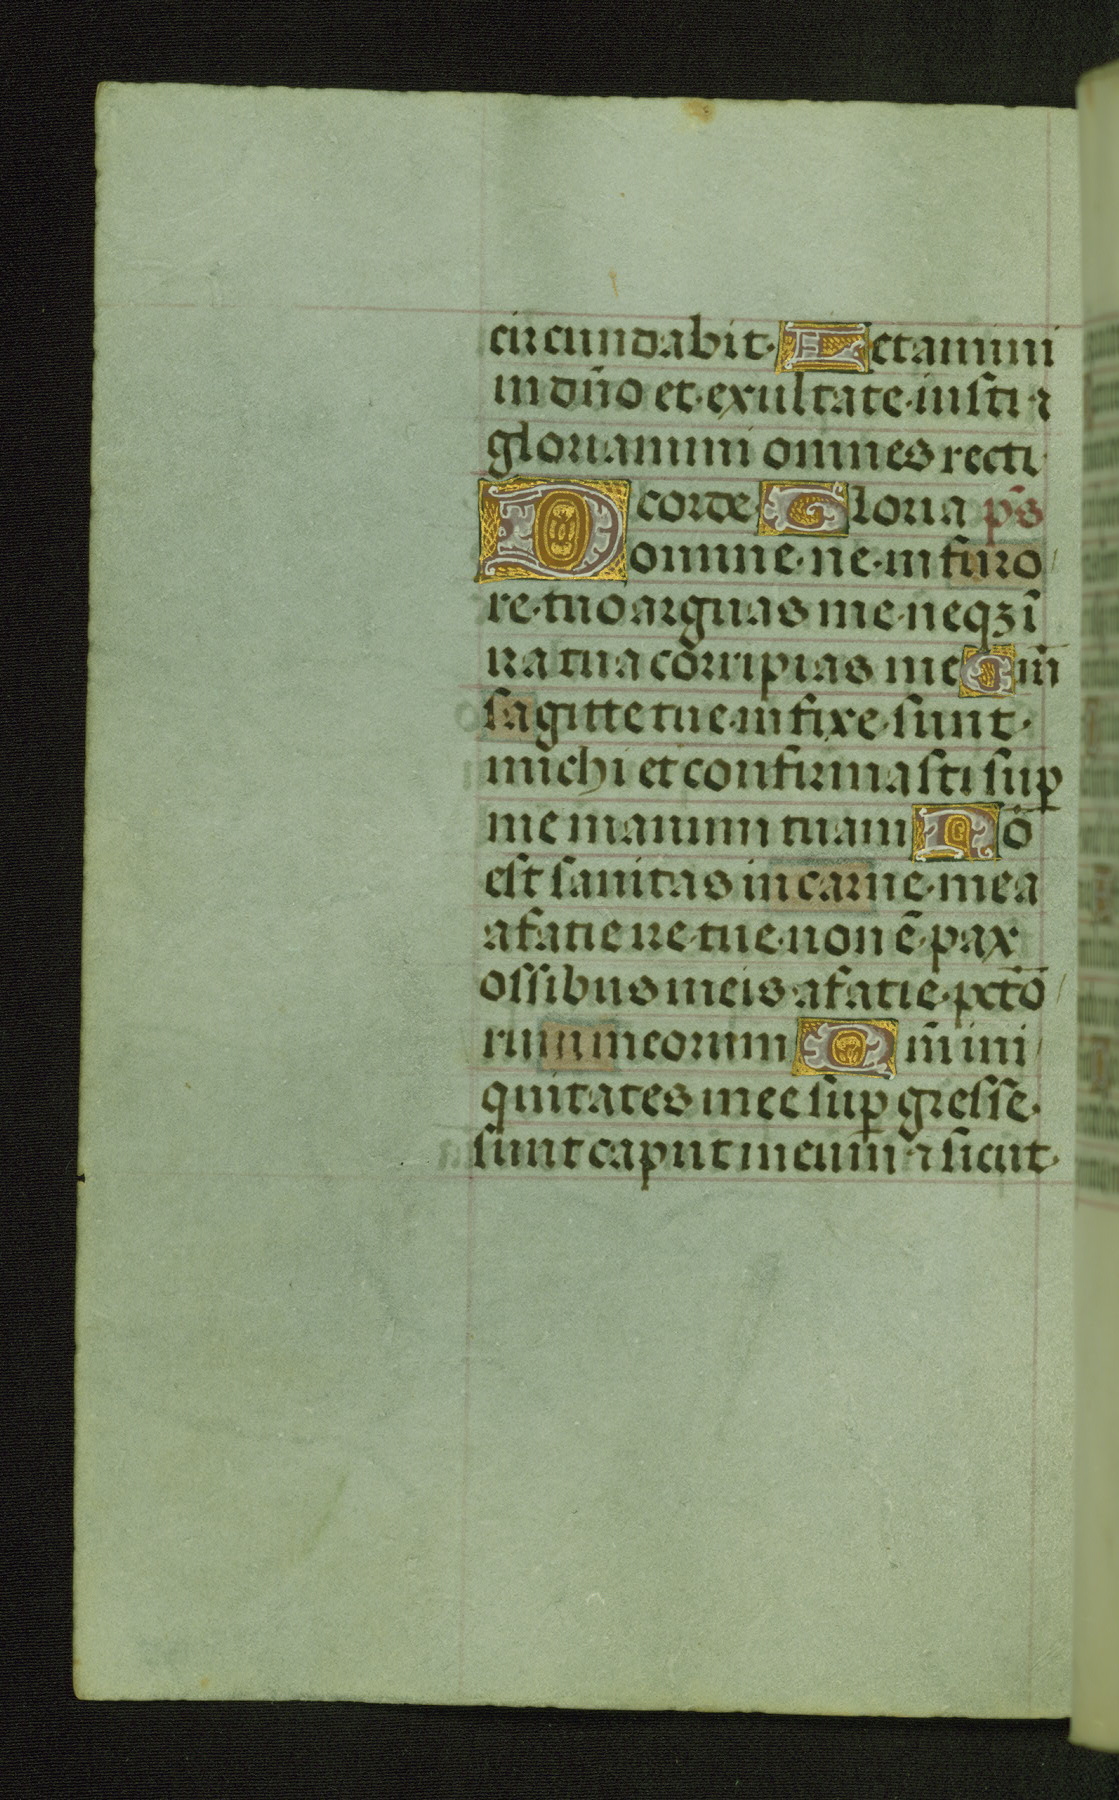 circundabit· Letamini
in dño et·exultate·iusti ⁊
gloriamini omnes recti·
corde· Gloria p̄s
Domine·ne·in furo
re·tuo arguas me·neqꝫ ī
ira tua corripias me Qm̄
sagitte tue·infixe·sunt·
michi et confirmasti suꝑ
me manum tuam Nō
est sanitas in carne·mea
a fatie ire·tue·non ē·pax
ossibus meis·a fatie·pctō
rum meorum Qm̄ ini
quitates mee suꝑ gresse·
sunt caput meum ⁊ sicut·